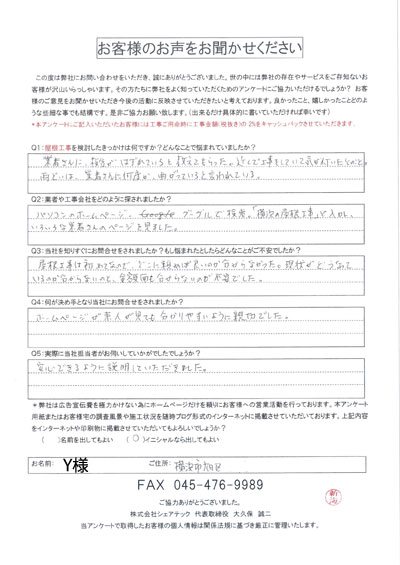 お客様のお声をお聞かせください
この度は弊社にお問い合わせをいただき、誠にありがとうございました。世の中には弊社の存在やサービスをご存知ないお
客様が沢山いらっしゃいます。その方たちに弊社をよく知っていただくためのアンケートにご協力いただけるでしょうか？ お客
様のご意見をお聞かせいただき今後の活動に反映させていただきたいと考えております。良かったこと、嬉しかったことどのよう
な些細な事でも結構です。是非ご協力お願い致します。(出来るだけ具体的に書いていただければ幸いです)
*本アンケートにご記入いただいたお客様には工事ご用命時に工事金額(税抜き)の2%をキャッシュバックさせていただきます。
Q1:屋根工事を検討したきっかけは何ですか？どんなことで悩まれていましたか？
業者さんに、
Q2:業者や工事会社をどのように探されましたか？
パソコンのホームページ。 グーグルで検索。「横浜の屋根工事」で入力し、
いろいろな業者さんのページを見ました。
Q3:当社を知りすぐにお問合せをされましたか？もし悩まれたとしたらどんなことがご不安でしたか？
屋根工事は初めてなので、どこに頼めば良いのか分からなかった。現状がどうなって
いるのか分からないのと、金額面も分からないのが不安でした。
Q4:何が決め手となり当社にお問合せをされましたか？
ホームページが素人が見ても分かりやすいように親切でした。
Q5:実際に当社担当者がお伺いしていかがでしたでしょうか？
安心できるように説明していただきました。
*弊社は広告宣伝費を極力かけない為にホームページだけを頼りにお客様への営業活動を行っております。本アンケート
用紙またはお客様宅の調査風景や施工状況を随時ブログ形式のインターネットに掲載させていただいております。上記内容
をインターネットや印刷物に掲載させていただいてもよろしいでしょうか？
( )名前を出してもよい (○)イニシャルなら出してもよい
お名前: Y様 ご住所: 横浜市旭区
FAX 045-476-9989
ご協力ありがとうございました。
株式会社シェアテック 代表取締役 大久保 誠二
当アンケートで取得したお客様の個人情報は関係法規に基づき厳正に管理いたします。